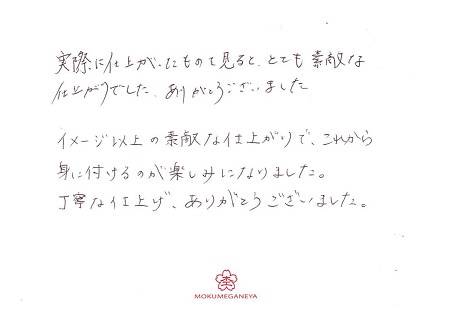 実際に仕上がったものを見ると、とても素敵な
仕上がりでした、ありがとうございました
イメージ以上の素敵な仕上がりで、これから
身に付けるのが楽しみになりました。
丁寧な仕上げ、ありがとうございました。
MOKUMEGANEYA